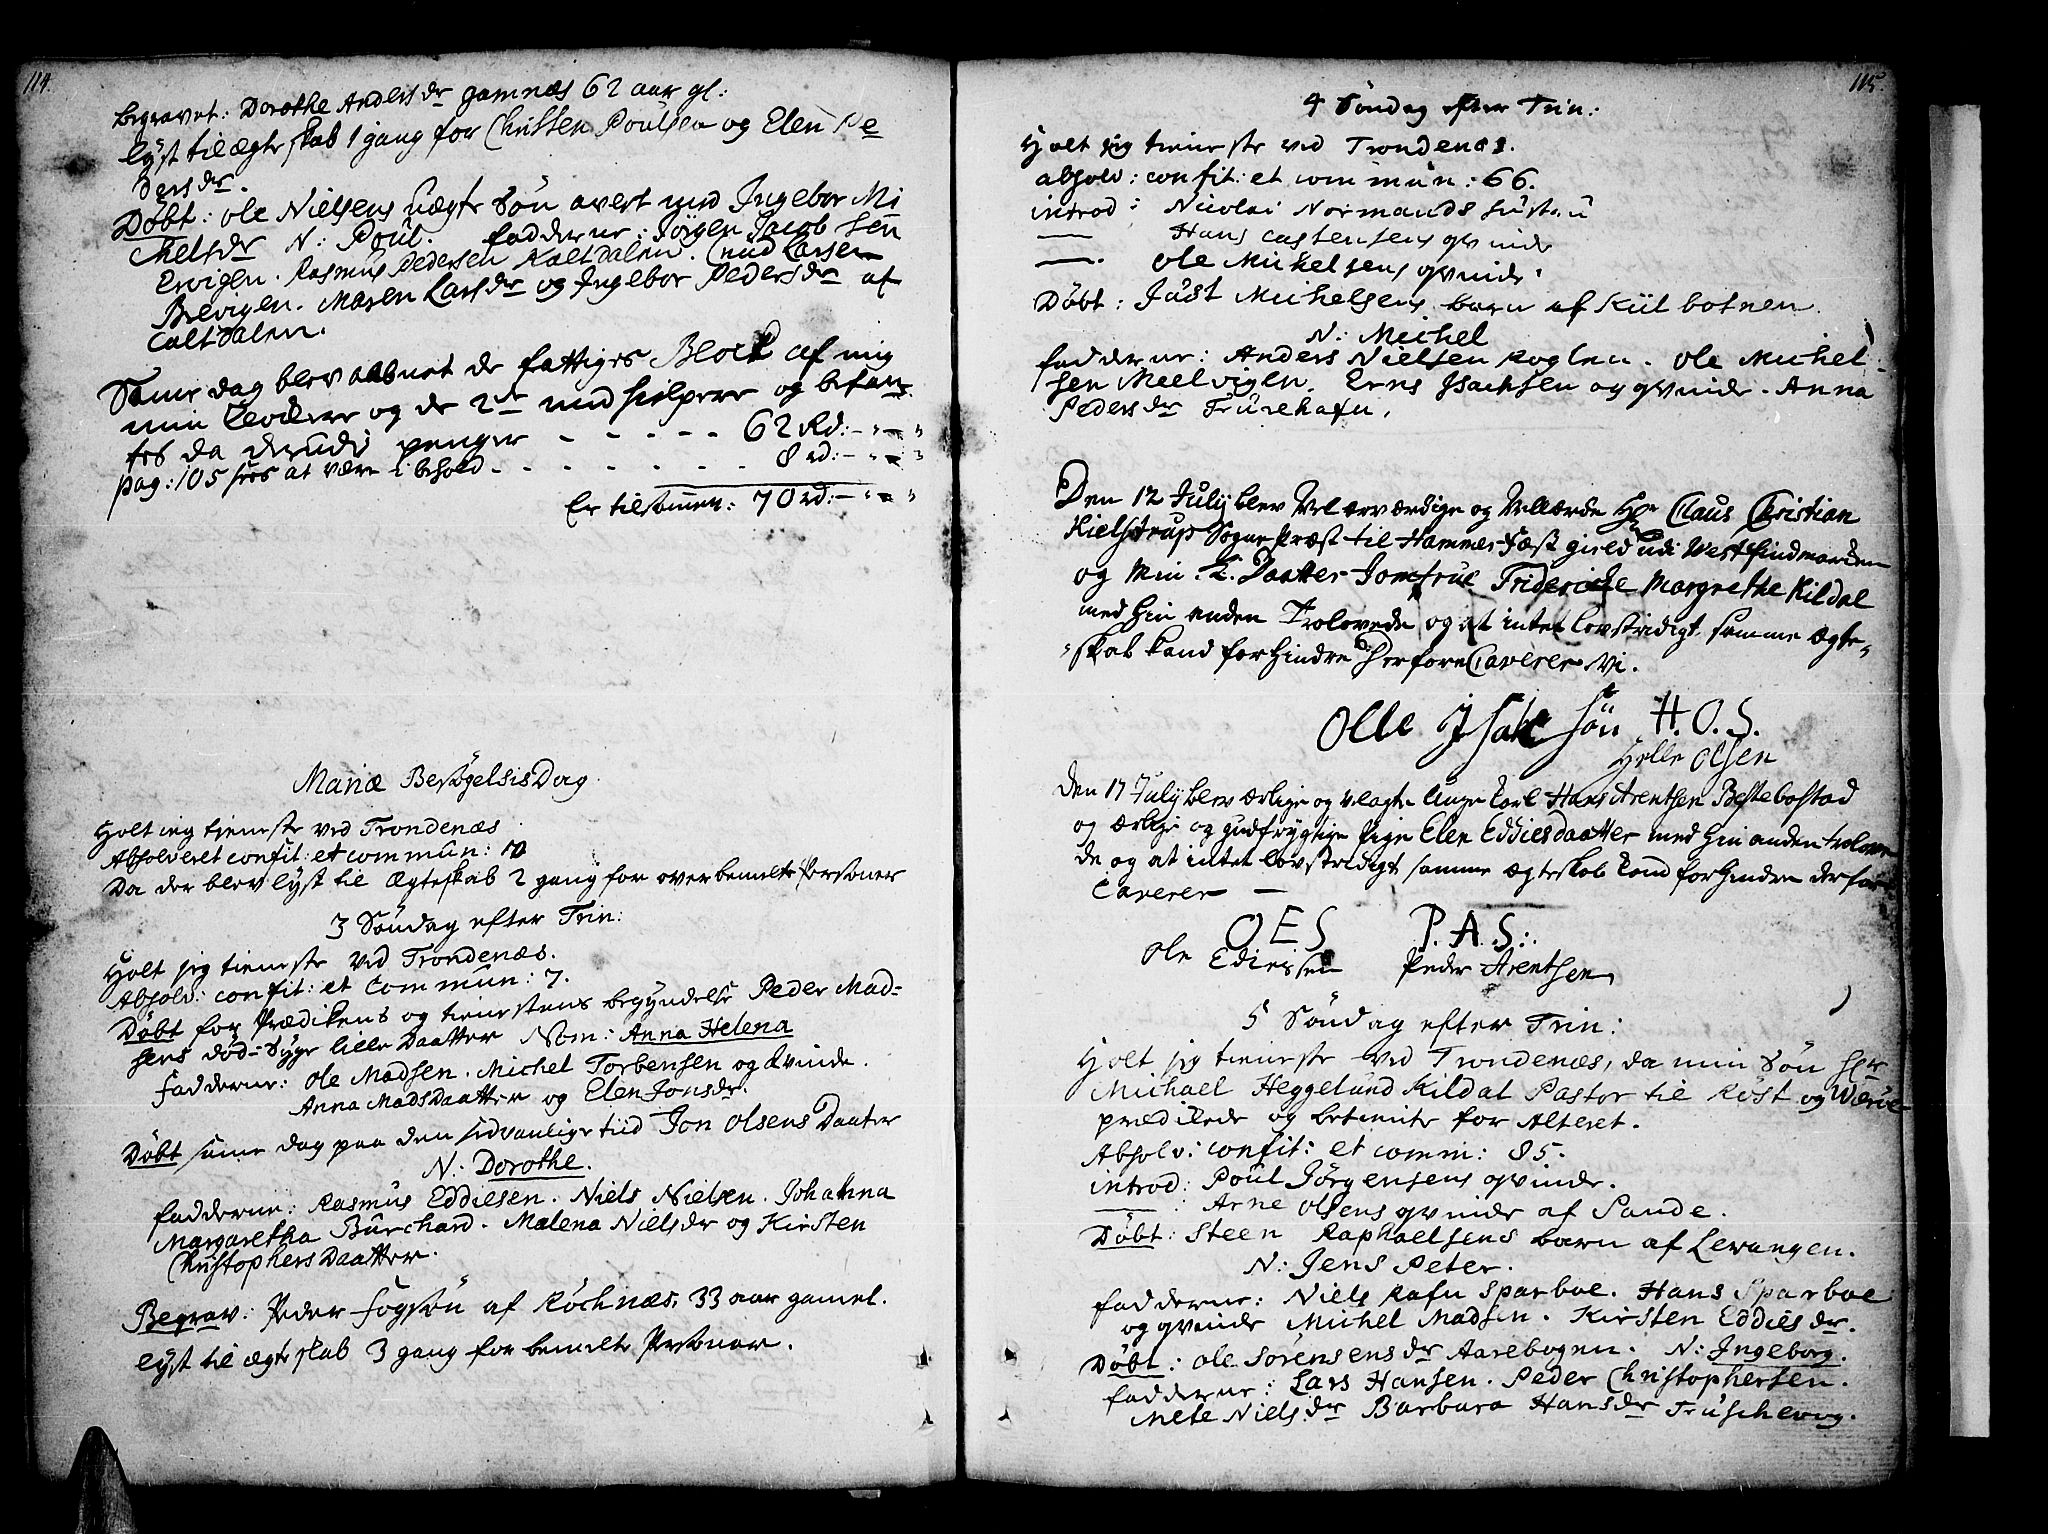 114.
Begravet: Dorothe Anders dr gamnæs 62 aar gl:
lyst til ægteskab 1 gang for Christen Poulsen og Elen Pe
ders dr.
Døbt: ole Nielsens uægte Søn avlet med Ingebor Mi
chels dr N: Poul. fadderne: Jørgen Jacobsen
Ervigen. Rasmus Pedersen Kaltdalen. Cnud Larsen
Brevigen. Maren Lars dr og Ingebor Peders dr af
Caltdalen.
Same dag blev aabnet de fattiges Block af mig
min Clochere og de 2de med hielpere og befan-
tes da derudi penger - - - - - 62 Rd:-"-"
pag: 105 sees at være i behold - - - - - - 8 rd:-"-"
Er tilsamen: 70 rd:-"-"
Mariæ Besøgelsis Dag.
Holt ieg tieneste ved Trondenæs
Absolveret confit: et commun: 12
Da der blev lyst til Ægteskab 2 gang for overbemelte Personer
3 Søndag efter Trin:
Holt jeg tieneste ved Trondenæs.
Absolv: confit: et Commun: 7.
Døbt for Prædikens og tienestens begyndelse Peder Mad-
sens død-Syge lille Daatter Nom: Anna Helena
Fadderne: Ole Madsen. Michel Torbensen og Kvinde.
Anna Mads Daatter og Elen Jons dr.
Døbt same dag paa den sedvanlige tiid Jon Olsens Daater
N: Dorothe.
fadderne: Rasmus Eddiesen. Niels Nielsen. Johanna
Margaretha Burchard. Malena Niels dr og Kirsten
Christophers Daatter.
Begrav: Peder Fogsøn af Røchnæs, 33 aar gamel.
lyst til ægteskab 3 gang for bemelte Personer.
115.
4 Søndag efter Trin:
Holt jeg tieneste ved Trondenæs.
absolv: confit: et commun: 66.
introd: Nicolai Normands hustru
— Hans Castensens qvinde
— Ole Michelsens qvinde.
Døbt: Just Michelsens barn af Kiilbotnen.
N: Michel
fadderne: Anders Nielsen Roglen. Ole Michel-
sen Meelvigen. Erns Isachsen og qvinde. Anna
Peders dr Trusehafn.
Den 12 July blev Velærværdige og Vellærde Hr Claus Christian
Kielstrup Sogne Præst til Hammerfæst gield udi West findmarken
og Min K. Daatter Jomfrue Frideriche Margrethe Kildal
med hin anden Trolovede og at intet lovstridigt samme Ægte-
skab kand forhindre Derfore Caverer Vi.
Olle Isakson H.O.S.
Helle Olsen
Den 17 July blev ærlige og velagte Unge Karl Hans Arentsen Bestebostad
og ærlige og gudfrygtige Pige Elen Eddiesdaatter med hin anden trolove
de og at intet lovstridigt samme ægteskab kand forhindre derfor
Caverer —
OES P.A.S:
Ole Edissen Peder Arentsen
5 Søndag efter Trin:
Holt jeg tieneste ved Trondenæs, da min Søn Hr
Michael Heggelund Kildal Pastor til Røst og Værøe
prædikede og betiente for Alteret.
Absolv: confit: et comm: 85.
introd: Poul Jørgensens qvinde.
— : Arne Olsens qvinde af Sande.
Døbt: Steen Raphaelsens barn af Levangen.
N: Jens Peter.
fadderne: Niels Rafn Sparboe. Hans Sparboe
og qvinde Michel Madsen. Kirsten Eddies dr.
Døbt: Ole Sørensens dr Aarebogen. N: Ingeborg.
fadderne: Lars Hansen. Peder Christophersen.
Mete Niels dr Barbara Hans dr Truschevog.